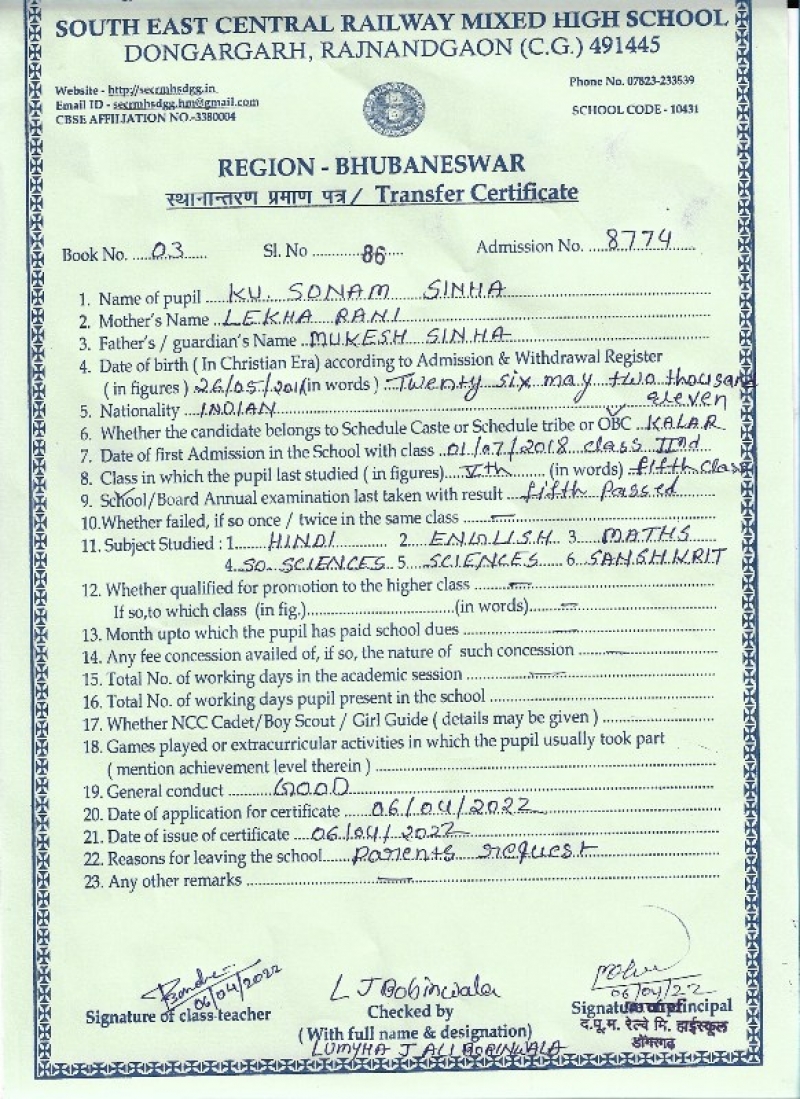 SOUTH EAST CENTRAL RAILWAY MIXED HIGH SCHOOL
DONGARGARH, RAJNANDGAON (C.G.) 491445
Website - http://secrmhsdgg.in
Phone No. 07823-233539
Email ID - secrmhsdgg.hm@gmail.com
CBSE AFFILIATION NO.-3380004
SCHOOL CODE - 10431
REGION - BHUBANESWAR
स्थानान्तरण प्रमाण पत्र / Transfer Certificate
Book No. 03 Sl. No 86 Admission No. 8774
1. Name of pupil KU. SONAM SINHA
2. Mother's Name LEKHA RANI
3. Father's / guardian's Name MUKESH SINHA
4. Date of birth ( In Christian Era) according to Admission & Withdrawal Register
(in figures ) 26/05/2011 (in words ) Twenty six may two thousand
eleven
5. Nationality INDIAN
6. Whether the candidate belongs to Schedule Caste or Schedule tribe or OBC KALAR
7. Date of first Admission in the School with class 01/07/2018 class IInd
8. Class in which the pupil last studied ( in figures) Vth (in words) fifth class
9. School/Board Annual examination last taken with result fifth Passed
10. Whether failed, if so once / twice in the same class —
11. Subject Studied : 1. HINDI 2 ENGLISH 3 MATHS
4. SO. SCIENCES 5 SCIENCES 6 SANSHKRIT
12. Whether qualified for promotion to the higher class —
If so,to which class (in fig.) (in words) —
13. Month upto which the pupil has paid school dues —
14. Any fee concession availed of, if so, the nature of such concession —
15. Total No. of working days in the academic session —
16. Total No. of working days pupil present in the school
17. Whether NCC Cadet/Boy Scout / Girl Guide ( details may be given )
18. Games played or extracurricular activities in which the pupil usually took part
( mention achievement level therein )
19. General conduct GOOD
20. Date of application for certificate 06/04/2022
21. Date of issue of certificate 06/04/2022
22. Reasons for leaving the school Parents request
23. Any other remarks —
06/04/2022
Signature of class teacher
L J Bobinwala
Checked by
(With full name & designation)
LUMYHA J ALI BOBINWALA
06/04/22
Signature of Principal
द.पू.म. रेल्वे मि. हाईस्कूल
डोंगरगढ़